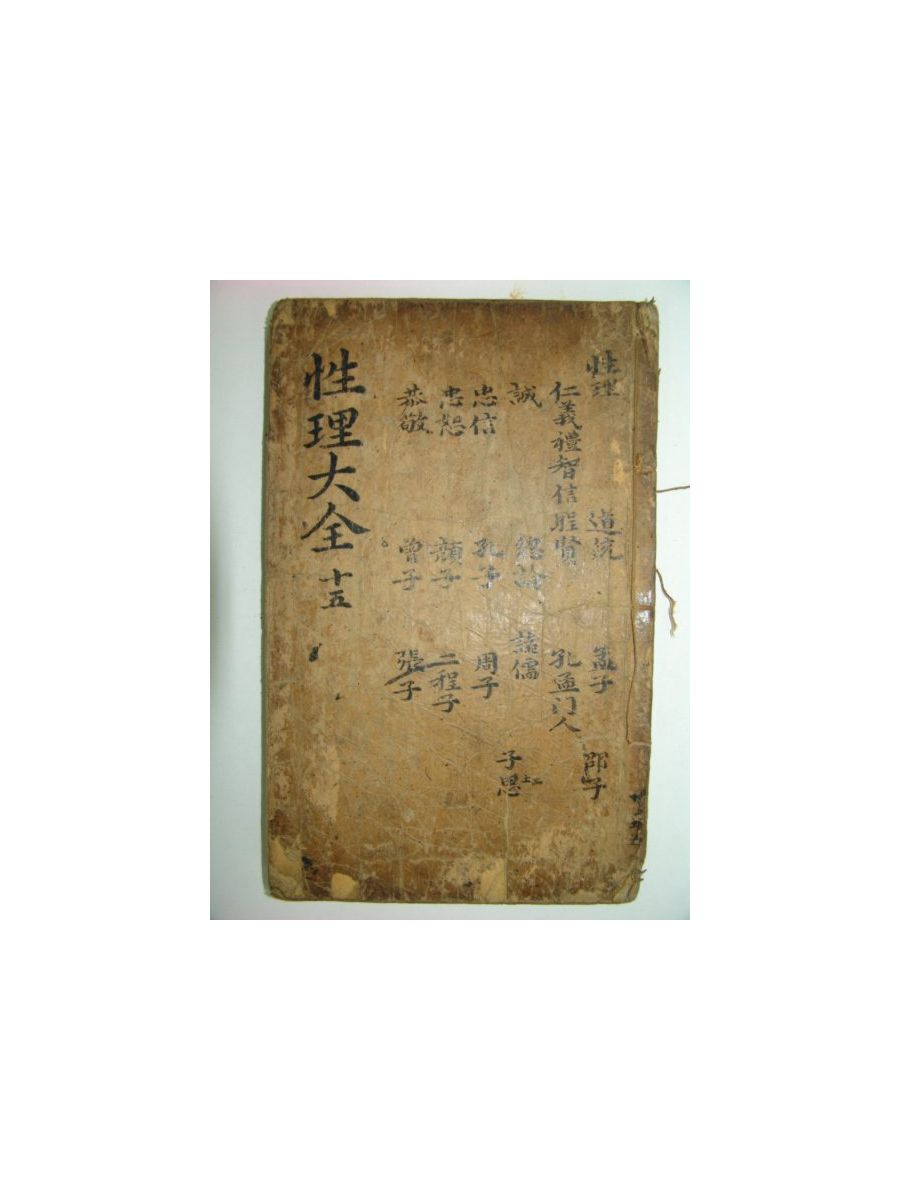 性理 道統 孟子 邵子
仁義禮智信 聖賢 孔孟门人
誠 總論 諸儒 子思
忠信 孔子 周子
忠恕 顔子 二程子
恭敬 曾子 張子
性理大全 十五